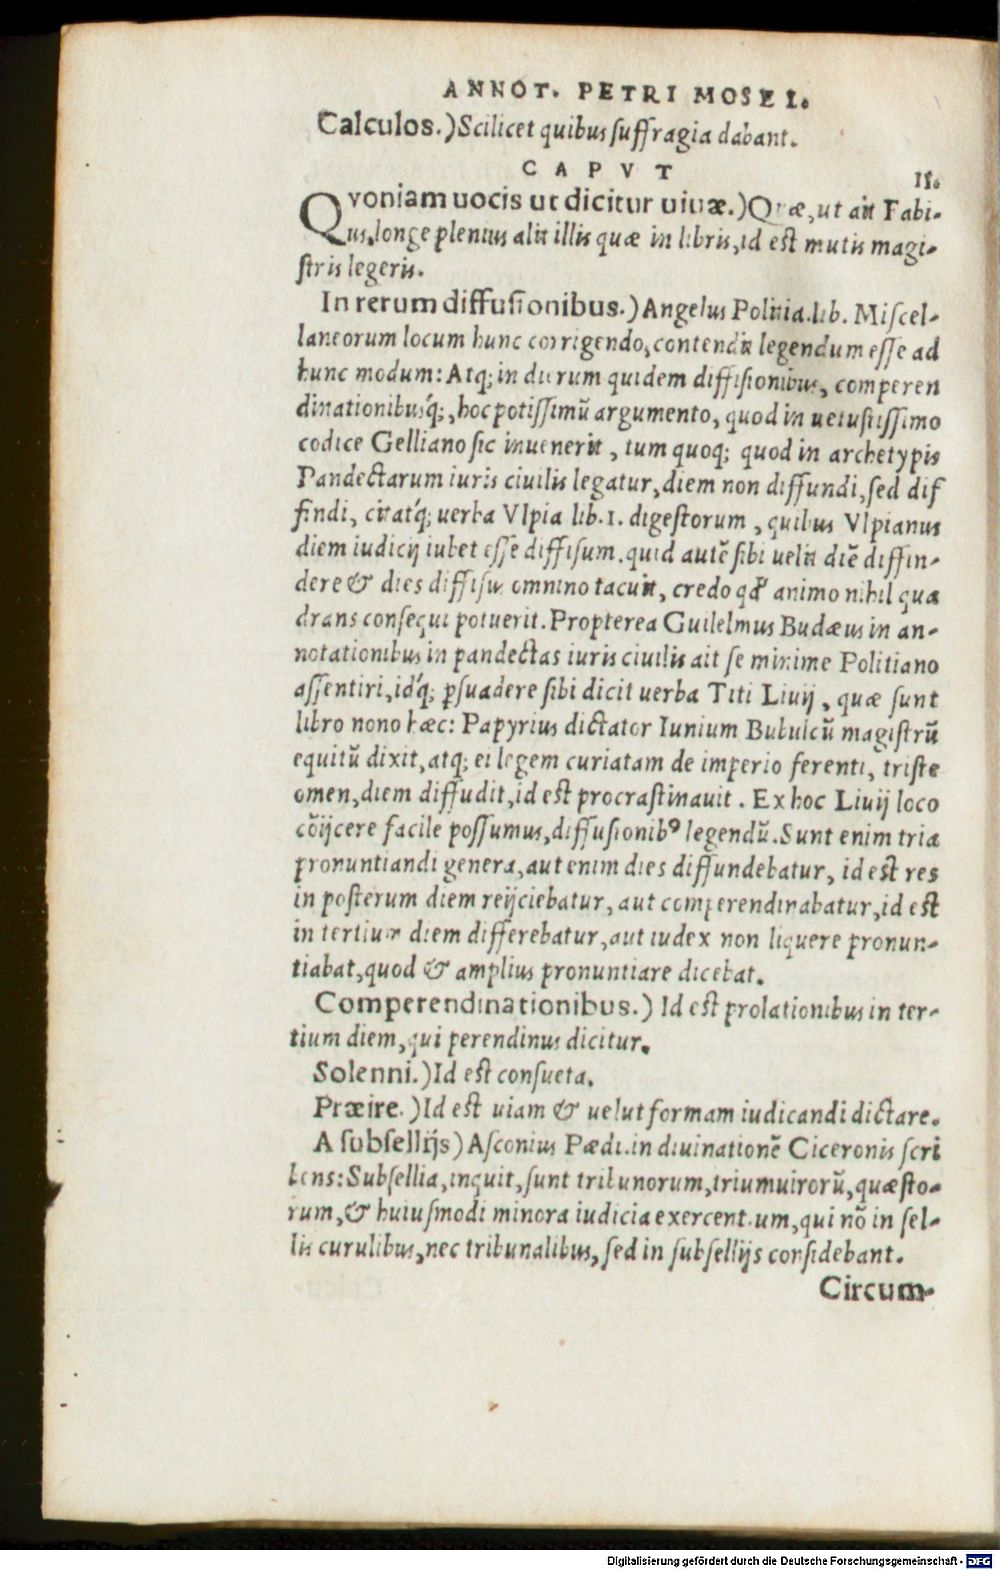 ANNOT. PETRI MOSEL.
Calculos.) Scilicet quibus suffragia dabant.
CAPVT II.
QVoniam uocis ut dicitur uiuæ.) Quæ, ut ait Fabi-
us, longe plenius alit illis quæ in libris, id est mutis magi-
stris legeris.
In rerum diffusionibus.) Angelus Politia. lib. Miscel-
laneorum locum hunc corrigendo, contendit legendum esse ad
hunc modum: Atq; in dierum quidem diffisionibus, comperen
dinationibusq́;, hoc potissimũ argumento, quod in uetustissimo
codice Gelliano sic inuenerit, tum quoq; quod in archetypis
Pandectarum iuris ciuilis legatur, diem non diffundi, sed dif
findi, citatq́; uerba Vlpia lib. 1. digestorum, quibus Vlpianus
diem iudicij iubet esse diffisum. quid autẽ sibi uelit diẽ diffin-
dere & dies diffisus omnino tacuit, credo qđ animo nihil qua
drans consequi potuerit. Propterea Guilelmus Budæus in an-
notationibus in pandectas iuris ciuilis ait se minime Politiano
assentiri, idq́; ꝑsuadere sibi dicit uerba Titi Liuij, quæ sunt
libro nono hæc: Papyrius dictator Iunium Bubulcũ magistrũ
equitũ dixit, atq; ei legem curiatam de imperio ferenti, triste
omen, diem diffudit, id est procrastinauit. Ex hoc Liuij loco
cõijcere facile possumus, diffusionibꝰ legendũ. Sunt enim tria
pronuntiandi genera, aut enim dies diffundebatur, id est res
in posterum diem reijciebatur, aut comperendinabatur, id est
in tertium diem differebatur, aut iudex non liquere pronun-
tiabat, quod & amplius pronuntiare dicebat.
Comperendinationibus.) Id est prolationibus in ter-
tium diem, qui perendinus dicitur.
Solenni.) Id est consueta.
Præire.) Id est uiam & uelut formam iudicandi dictare.
A subsellijs) Asconius Pædi. in diuinationẽ Ciceronis scri
bens: Subsellia, inquit, sunt tribunorum, triumuirorũ, quæsto-
rum, & huiusmodi minora iudicia exercentium, qui nõ in sel-
lis curulibus, nec tribunalibus, sed in subsellijs considebant.
Circum-
Digitalisierung gefördert durch die Deutsche Forschungsgemeinschaft - DFG